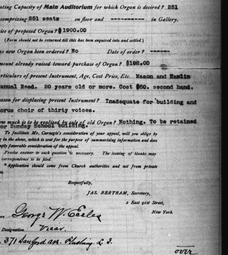 ating Capacity of Main Auditorium for which Organ is desired? 251
comprizing 251 seats on floor and ---------- in Gallery.
rice of proposed Organ? $1900.00
(Form should not be returned till this has been enquired into and settled.)
new Organ been Ordered? No Date of order? ------
mount already raised toward purchase of Organ? $198.00
rticulars of present Instrument, Age, Cost Price, Etc. Mason and Hamlin
anual Reed. 20 years old or more. Cost $60. second hand.
eason for displacing present Instrument? Inadequate for building and
orus choir of thirty voices.
ow much is to be realized in sale of old Organ? Nothing. To be retained
or Sunday School building.
To facilitate Mr. Carnegie's consideration of your appeal, will you oblige by
the above, which is sent for the purpose of summarizing information and does
imply favorable consideration of the appeal.
Precise answer to each question is necessary. The issuing of thanks may
correspondence to be filed.
Application should come from Church authorities and not from private
Respectfully,
JAS. BERTRAM, Secretary,
2 East 91st Street,
New York.
George W. Eccles
Designation
Vicar.
371 Sanford ave. Flushing L.I.
over